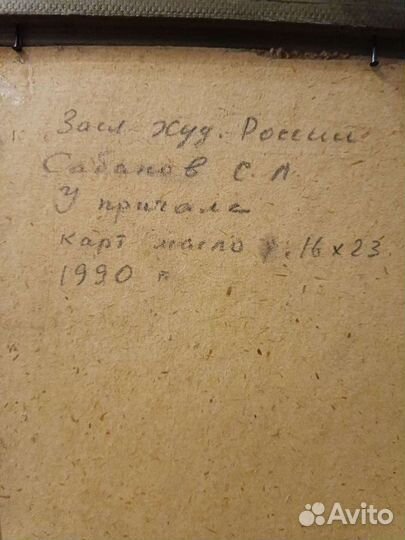 Засл худ. России
Сабанов С. А
У причала
карт масло р. 16 х 23.
1990 г
Avito